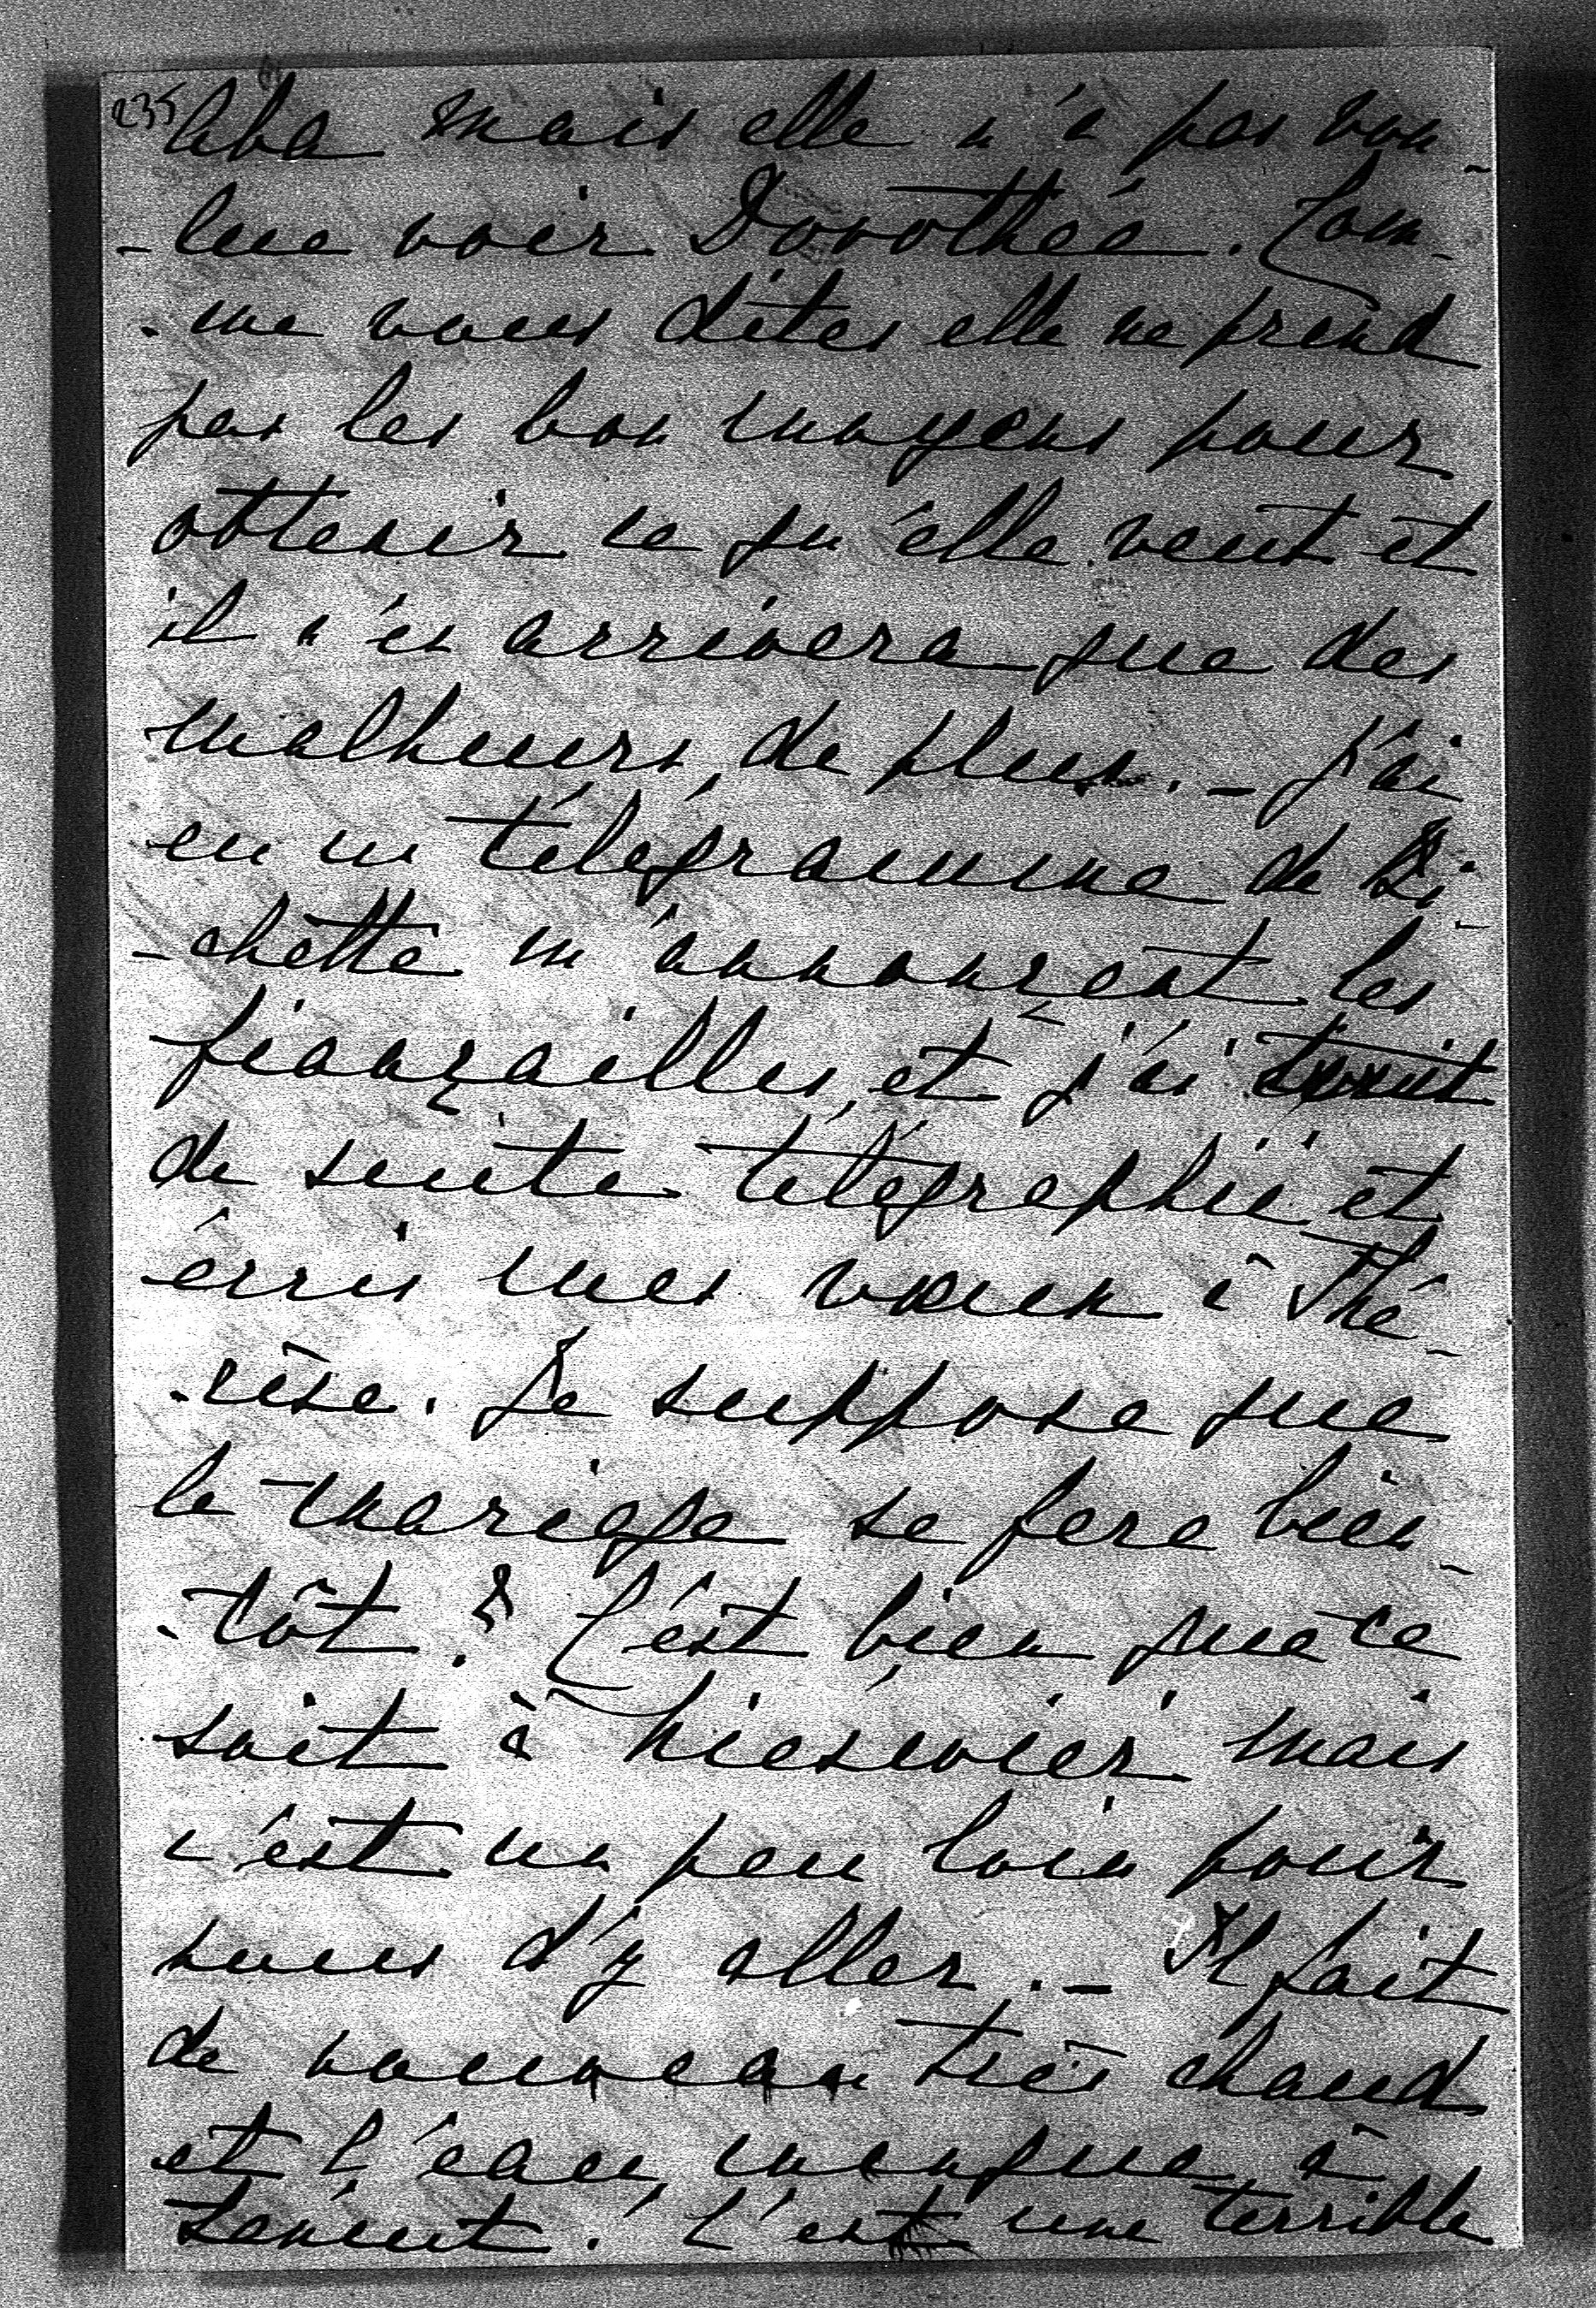 235
liba mais elle n'a pas vou-
-lue voir Dorothée. Com-
-me vous dites elle ne prend
pas les bon moyens pour
obtenir ce qu'elle veut et
il n'en arrivera que des
malheurs de plus. - J'ai
eu un télégramme de Bi-
-chette m'annonçent les
fiançailles, et j'ai tout
de suite télégraphié et
écris mes voeux à Thé-
-rèse. Je suppose que
le mariage se fera bien-
-tôt? C'est bien que ce
soit à Nieswiez mais
c'est un peu loin pour
nous d'y aller. - Il fait
de nouveau très chaud
et l'eau manque à
Lancut. C'est une terrible